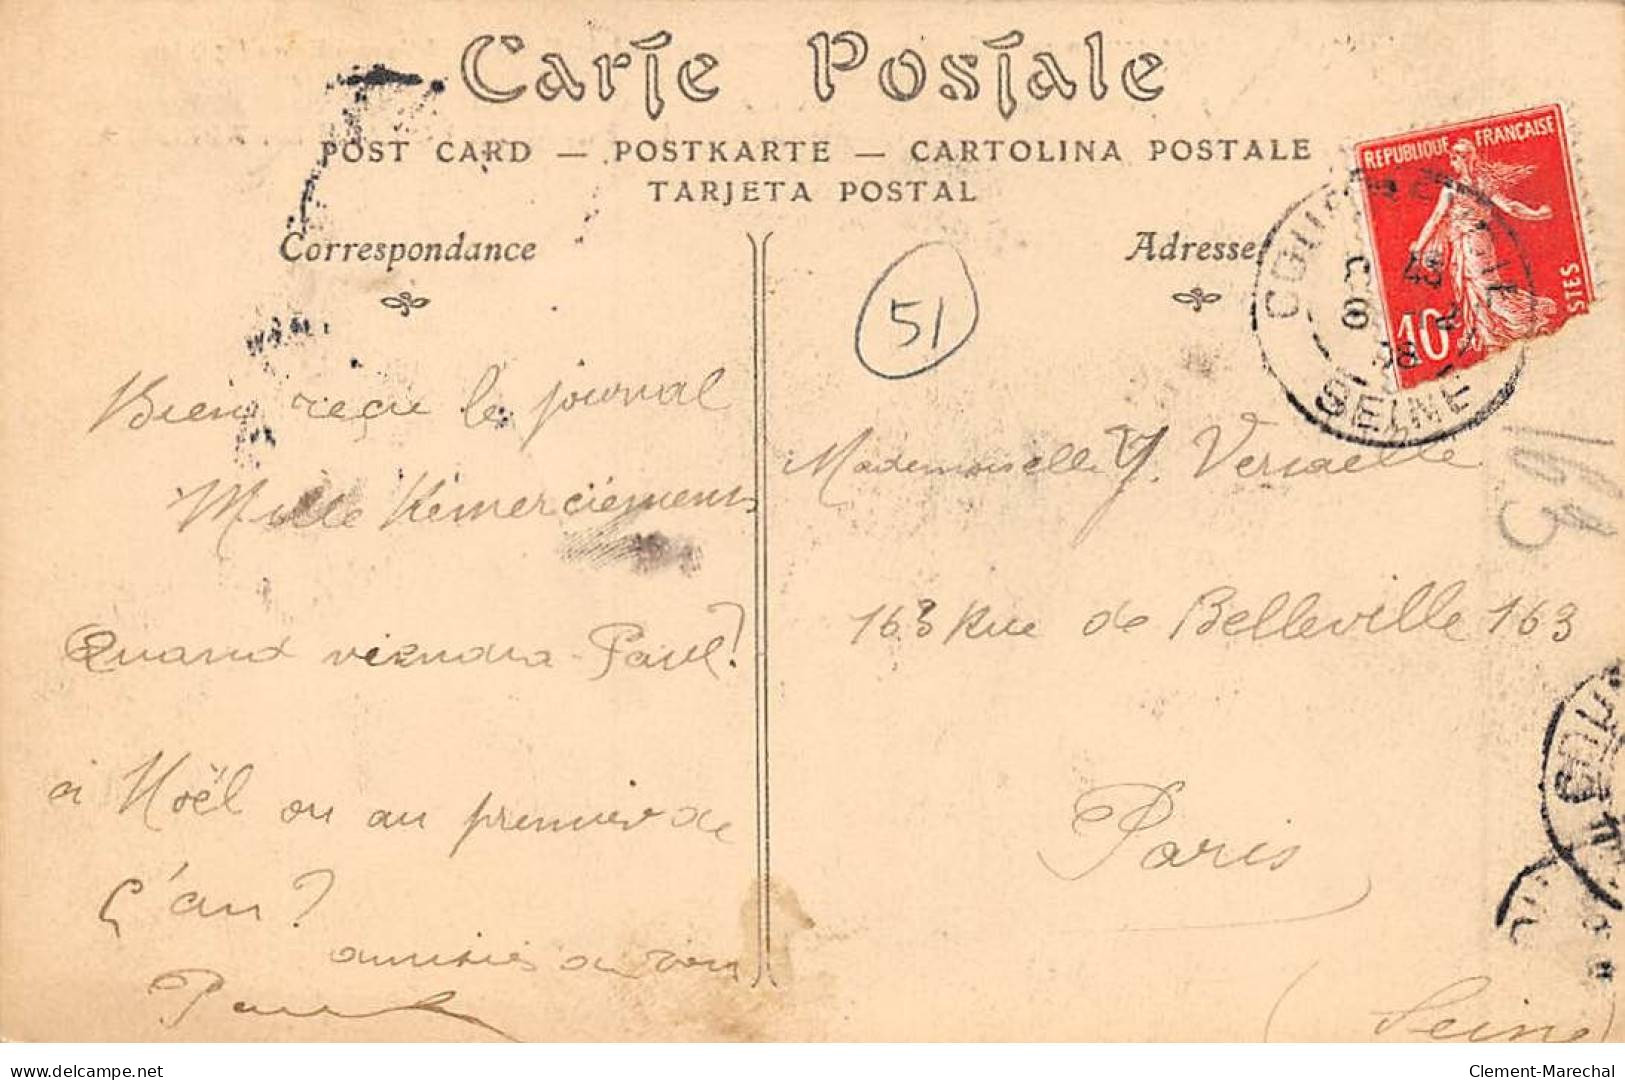 Carte Postale
POST CARD — POSTKARTE — CARTOLINA POSTALE
TARJETA POSTAL
Correspondance
Adresse
REPUBLIQUE FRANÇAISE
10
STES
SEINE
51
Bien reçu le journal
Mille Remerciements
Quand viendra Paul?
à Noël ou au premier de
L'an?
amitiés
Mademoiselle Y.
163 Rue de Belleville 163
Paris
(Seine)
163
delcampe.net
Clement-Marechal